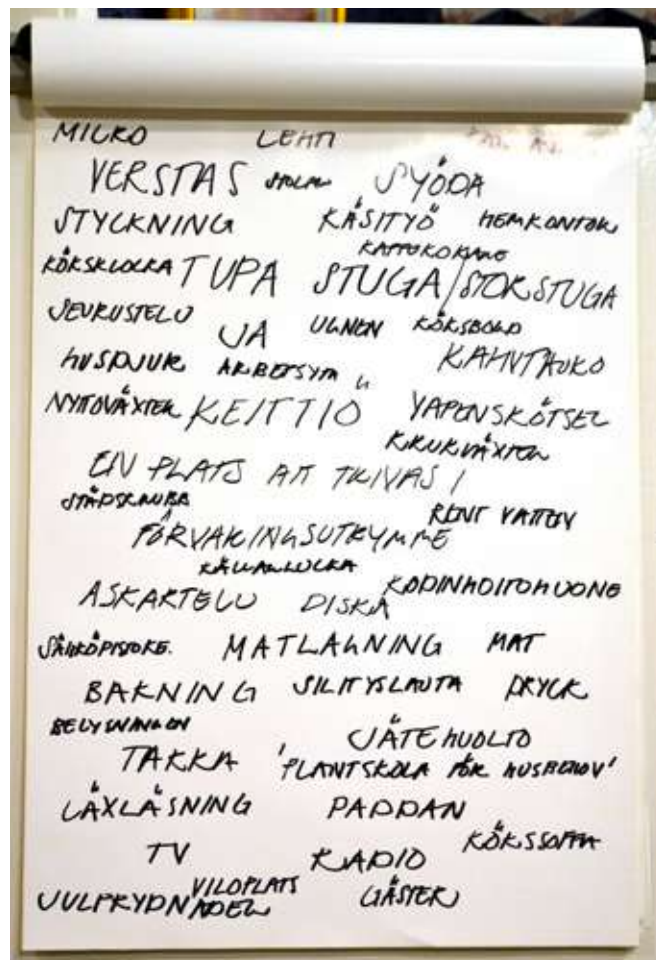 MICRO LEHTI
VERSTAS SYÖDA
STYCKNING KÄSITYÖ HEMKONTOR
KAFFEKOKARE
KÖKSKLOCKA TUPA STUGA/STORSTUGA
SEURUSTELU JA UGNEN KÖKSBORD
HUSDJUR ARBETSYTA KAHVITAUKO
NYTTOVÄXTER KEITTIÖ VAPENSKÖTSEL
KRUKVÄXTER
EN PLATS ATT TRIVAS I
STÄDSKRUBB RENT VATTEN
FÖRVARINGSUTRYMME
KÄLLARLUCKA
ASKARTELU DISKA KODINHOITOHUONE
SÄHKÖPISTOKE. MATLAGNING MAT
BAKNING SILITYSLAUTA DRYCK
BELYSNINGEN
TAKKA JÄTEHUOLTO
'PLANTSKOLA FÖR HUSBEHOV'
LÄXLÄSNING PADDAN
TV RADIO KÖKSSOFFA
JULPRYDNADER VILOPLATS GÄSTER